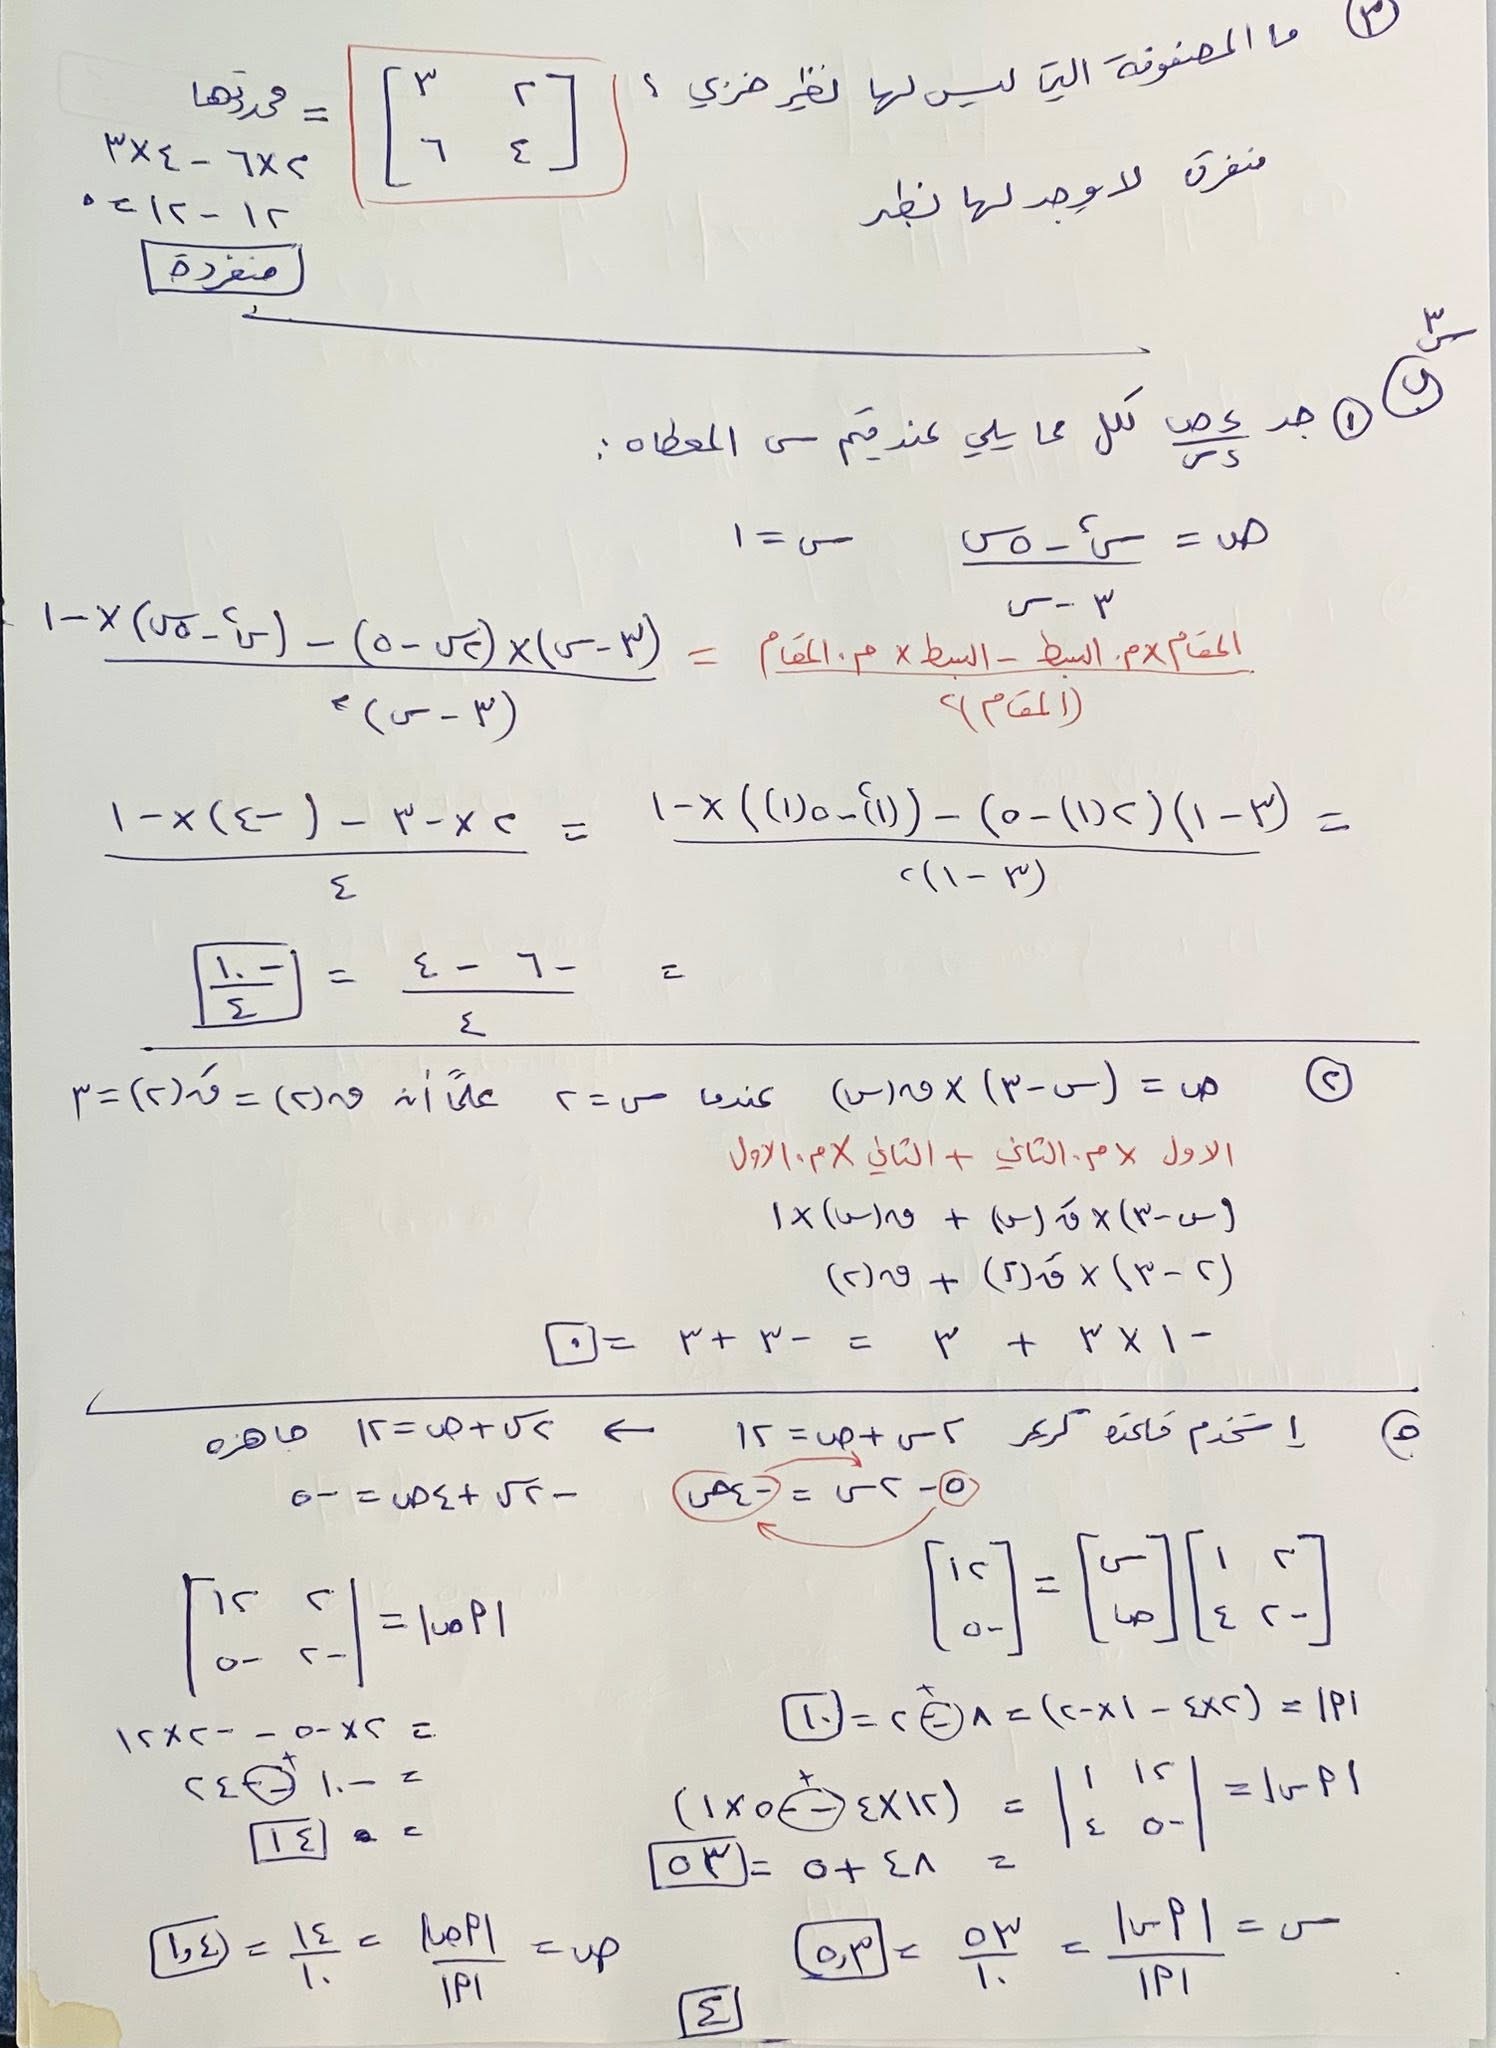 ٣ ما المصفوفة التي ليس لها نظير ضربي ؟ [٢ ٣ = محددتها
٤ ٦] ٢×٦ - ٤×٣
منفردة لا يوجد لها نظير
١٢ - ١٢ = ٠
منفردة
س٣
ب ١ جد دص/دس لكل مما يلي عند قيم س المعطاه :
ص = (س٢ - ٥س)/(٣ - س) س = ١
(المقام × م. البسط - البسط × م. المقام)/(المقام)٢ = ((٣-س)×(٢س-٥) - (س٢-٥س)×-١)/(٣-س)٢
= ((٣-١)(٢(١)-٥) - ((١)٢-٥(١))×-١)/(٣-١)٢ = (٢×-٣ - (-٤)×-١)/٤
= (-٦ - ٤)/٤ = -١٠/٤
٢ ص = (س-٣)×ق(س) عندما س=٢ علماً أن ق(٢) = قَ(٢) = ٣
الاول × م. الثاني + الثاني × م. الاول
(س-٣)×قَ(س) + ق(س)×١
(٢-٣)×قَ(٢) + ق(٢)
-١×٣ + ٣ = -٣+٣ = ٠
إستخدم قاعدة كريمر ٢س+ص=١٢ ← ٢س+ص=١٢ جاهزه
٥-٢س = -٤ص -٢س+٤ص=-٥
[٢ ١ [س = [١٢
-٢ ٤] ص] -٥]
|أ| = (٢×٤ - ١×-٢) = ٨ - -٢ + = ١٠
|أس| = |١٢ ١ = (١٢×٤ - -٥×١) +
-٥ ٤|
= ٤٨ + ٥ = ٥٣
س = |أس|/|أ| = ٥٣/١٠ = ٥,٣
|أص| = |٢ ١٢
-٢ -٥|
= ٢×-٥ - -٢×١٢
= -١٠ - -٢٤ +
= ١٤
ص = |أص|/|أ| = ١٤/١٠ = ١,٤
٤